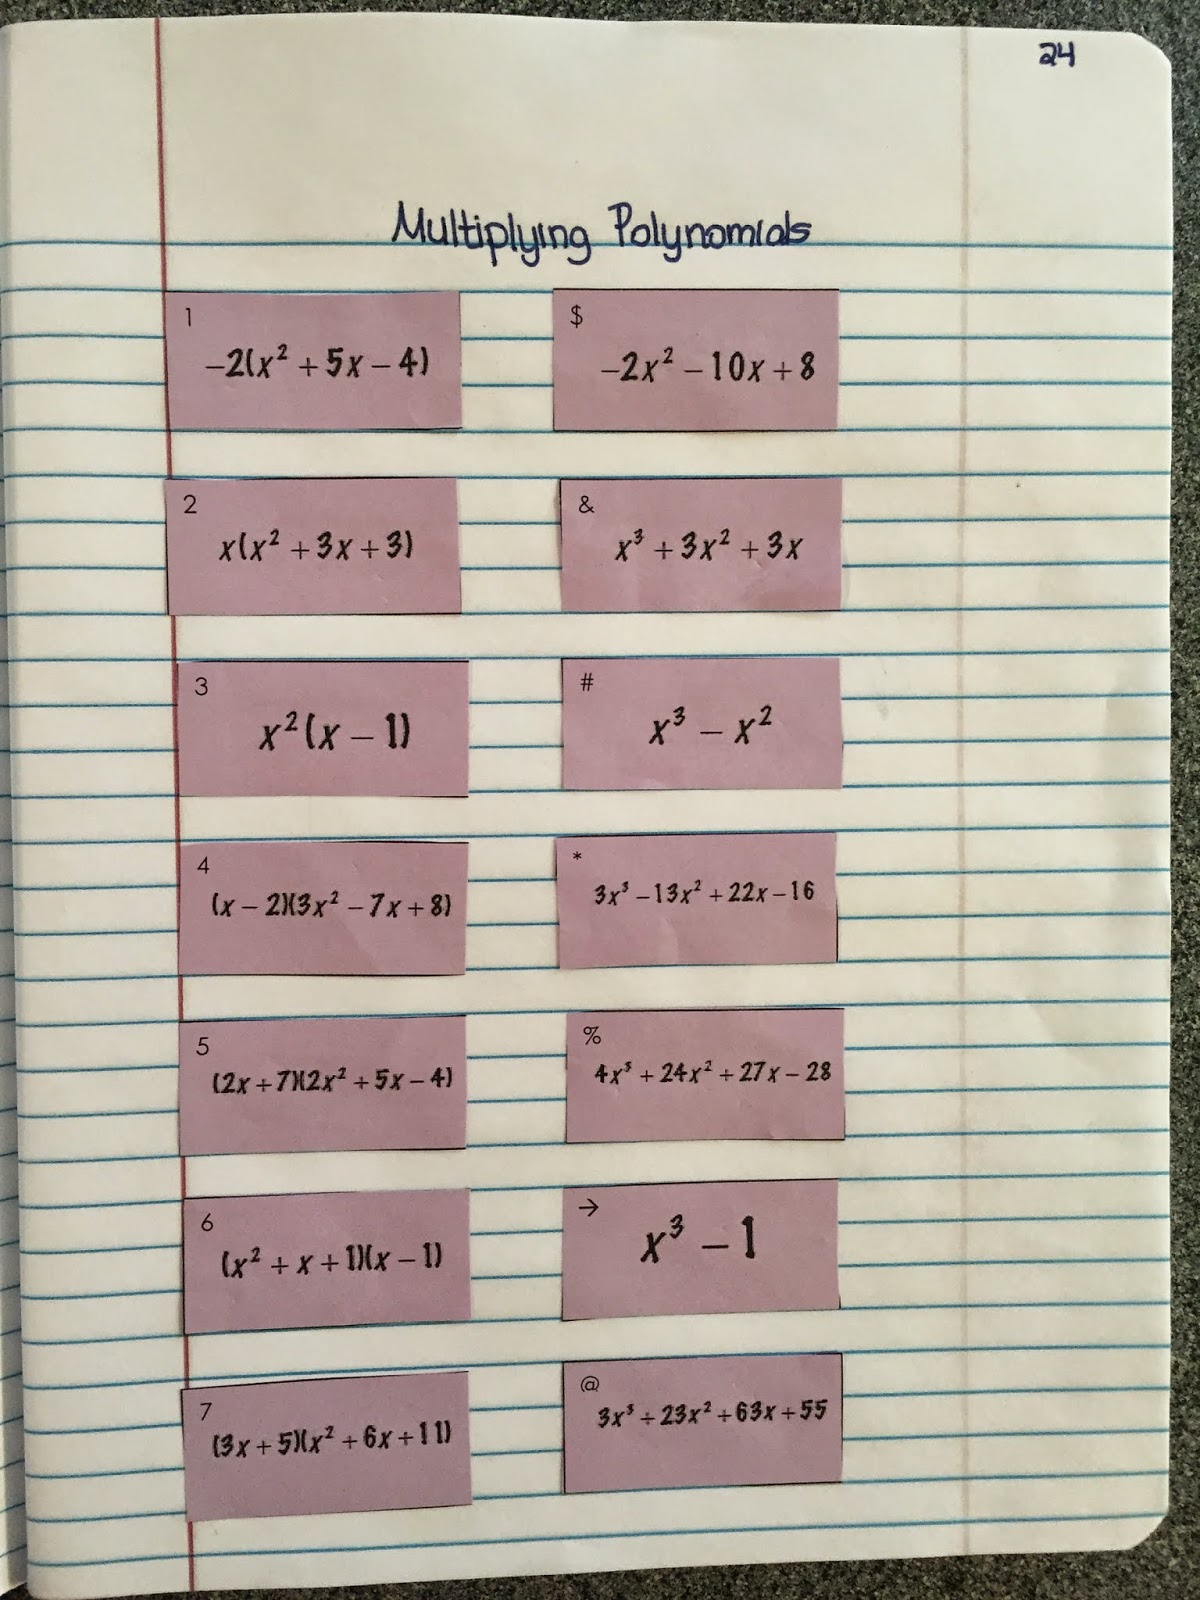 24
Multiplying Polynomials
1
−2(x² + 5x − 4)
$
−2x² − 10x + 8
2
x(x² + 3x + 3)
&
x³ + 3x² + 3x
3
x²(x − 1)
#
x³ − x²
4
(x − 2)(3x² − 7x + 8)
*
3x³ − 13x² + 22x − 16
5
(2x + 7)(2x² + 5x − 4)
%
4x³ + 24x² + 27x − 28
6
(x² + x + 1)(x − 1)
→
x³ − 1
7
(3x + 5)(x² + 6x + 11)
@
3x³ + 23x² + 63x + 55